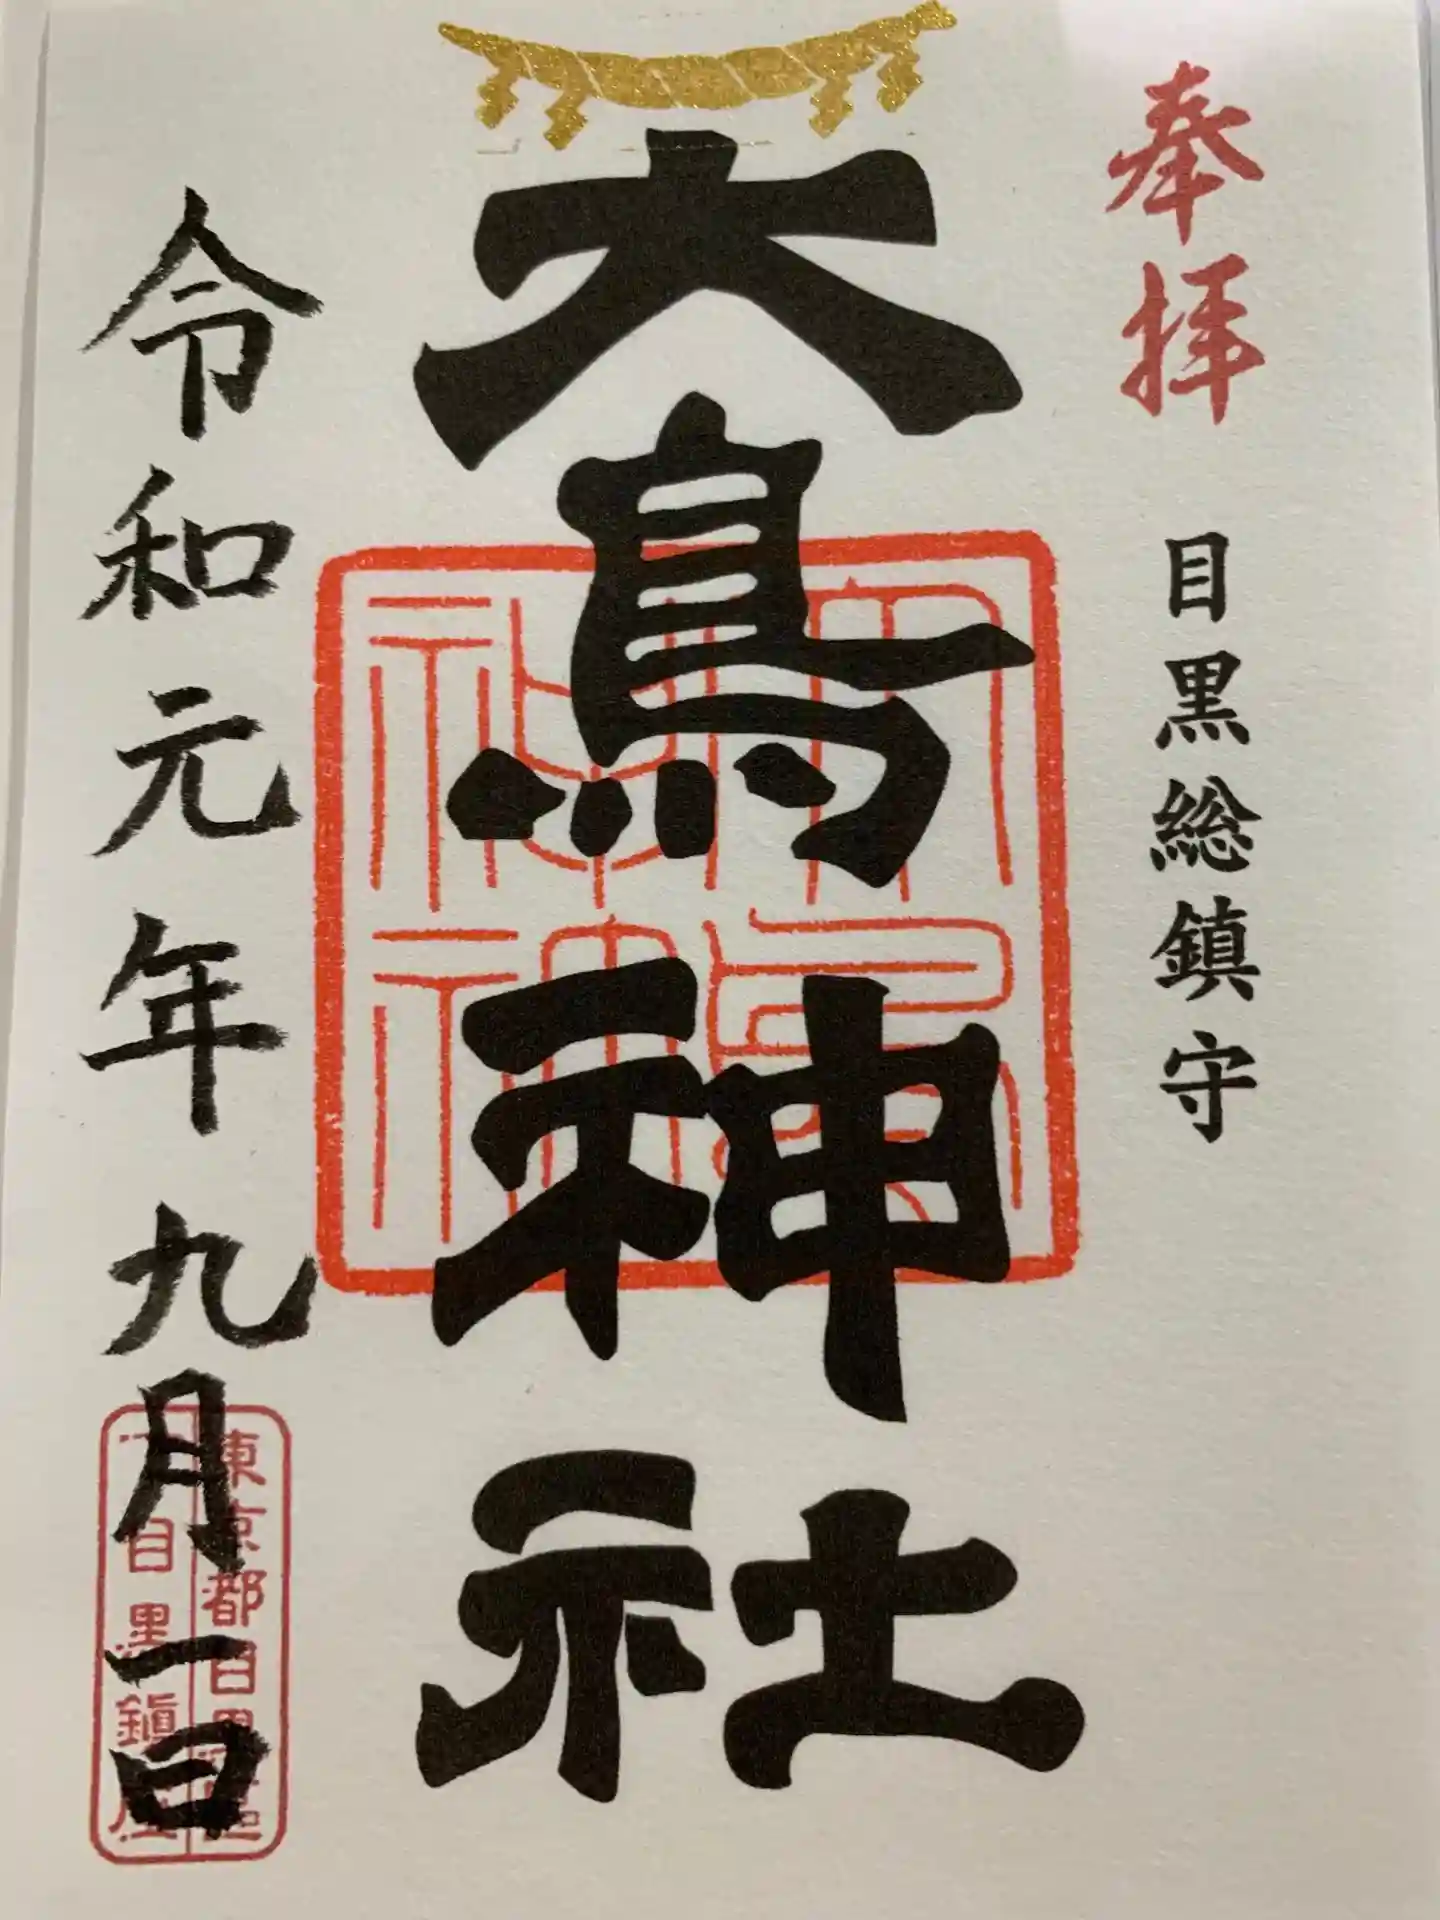 奉拝
目黒総鎮守
大鳥神社
令和元年九月一日
東京都目黒區
目黒鎮座